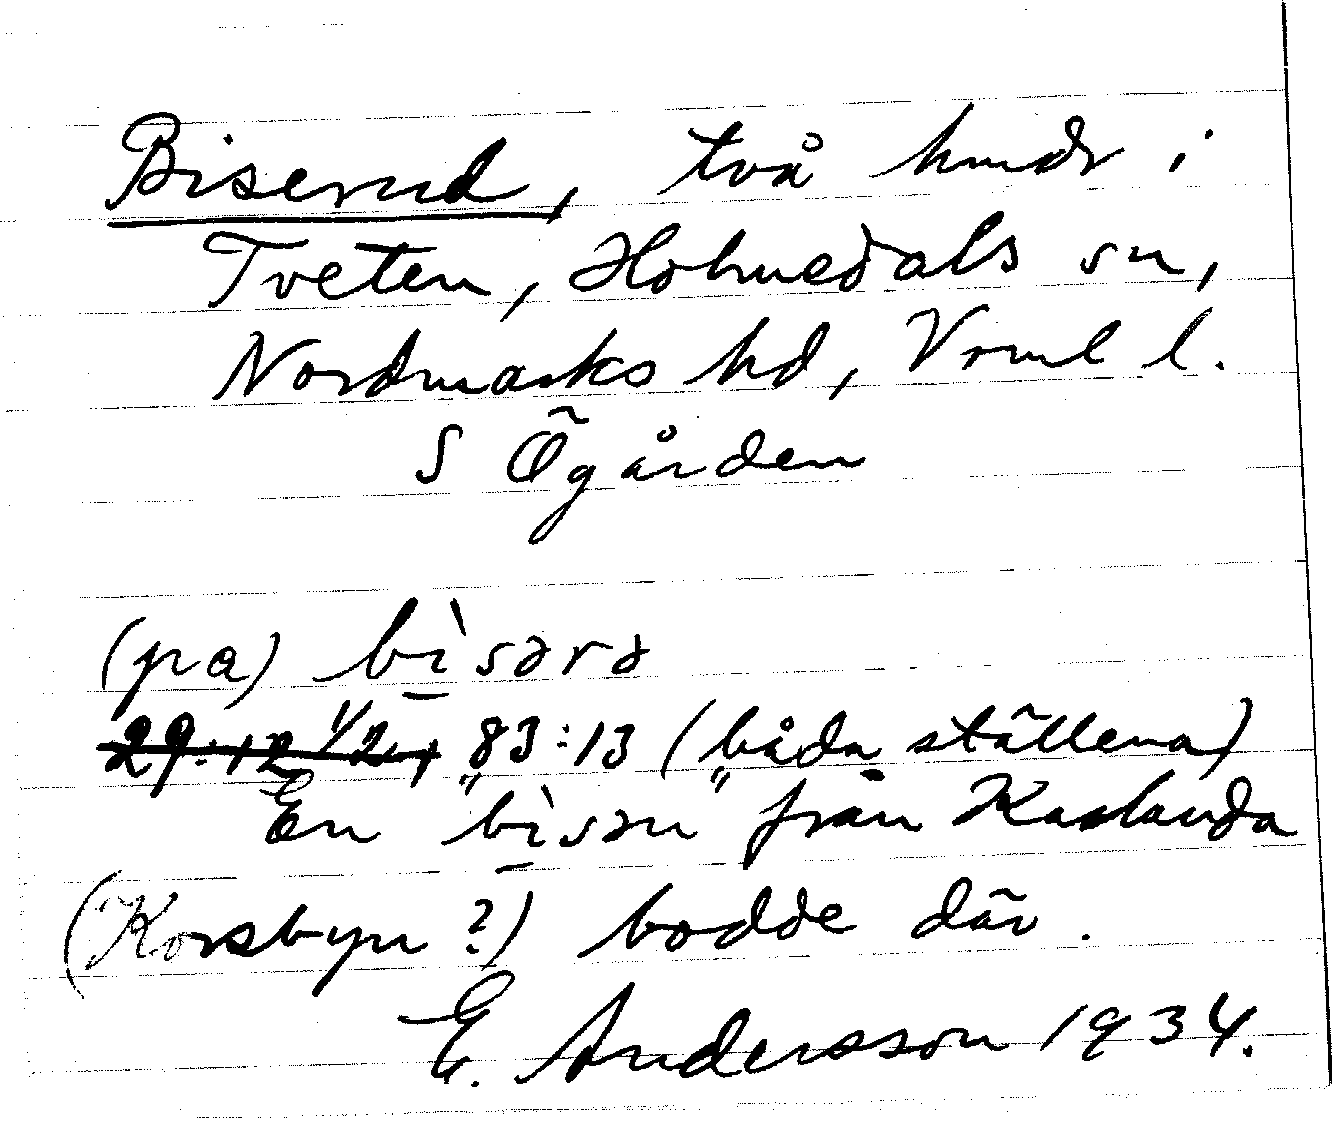 Biserud, två hmdr i
Tveten, Holmedals sn,
Nordmarks hd, Vrml l.
S Ögården
(pa) bì̠sərə
29:12 1/2, 83:13 (båda ställena)
En "bì̠sən" från Karlanda
(Korsbyn ?) bodde där.
E. Andersson 1934.